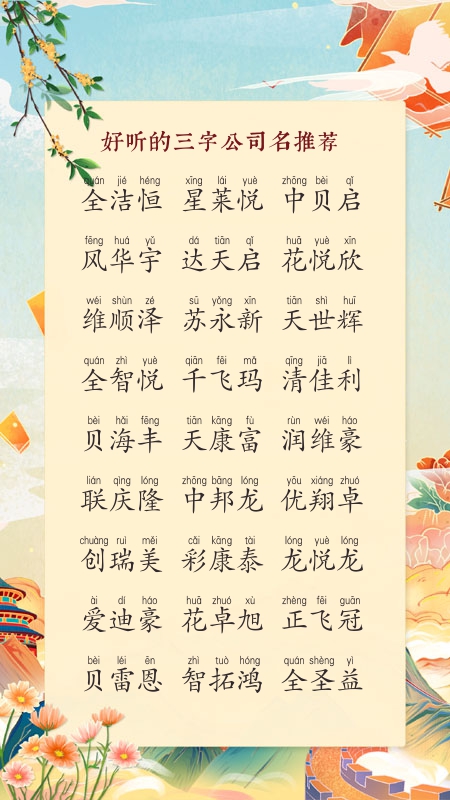 好听的三字公司名推荐
quán jié héng xīng lái yuè zhōng bèi qǐ
全洁恒 星莱悦 中贝启
fēng huá yǔ dá tiān qǐ huā yuè xīn
风华宇 达天启 花悦欣
wéi shùn zé sū yǒng xīn tiān shì huī
维顺泽 苏永新 天世辉
quán zhì yuè qiān fēi mǎ qīng jiā lì
全智悦 千飞玛 清佳利
bèi hǎi fēng tiān kāng fù rùn wéi háo
贝海丰 天康富 润维豪
lián qìng lóng zhōng bāng lóng yōu xiáng zhuó
联庆隆 中邦龙 优翔卓
chuàng ruì měi cǎi kāng tài lóng yuè lóng
创瑞美 彩康泰 龙悦龙
ài dí háo huā zhuó xù zhèng fēi guān
爱迪豪 花卓旭 正飞冠
bèi léi ēn zhì tuò hóng quán shèng yì
贝雷恩 智拓鸿 全圣益